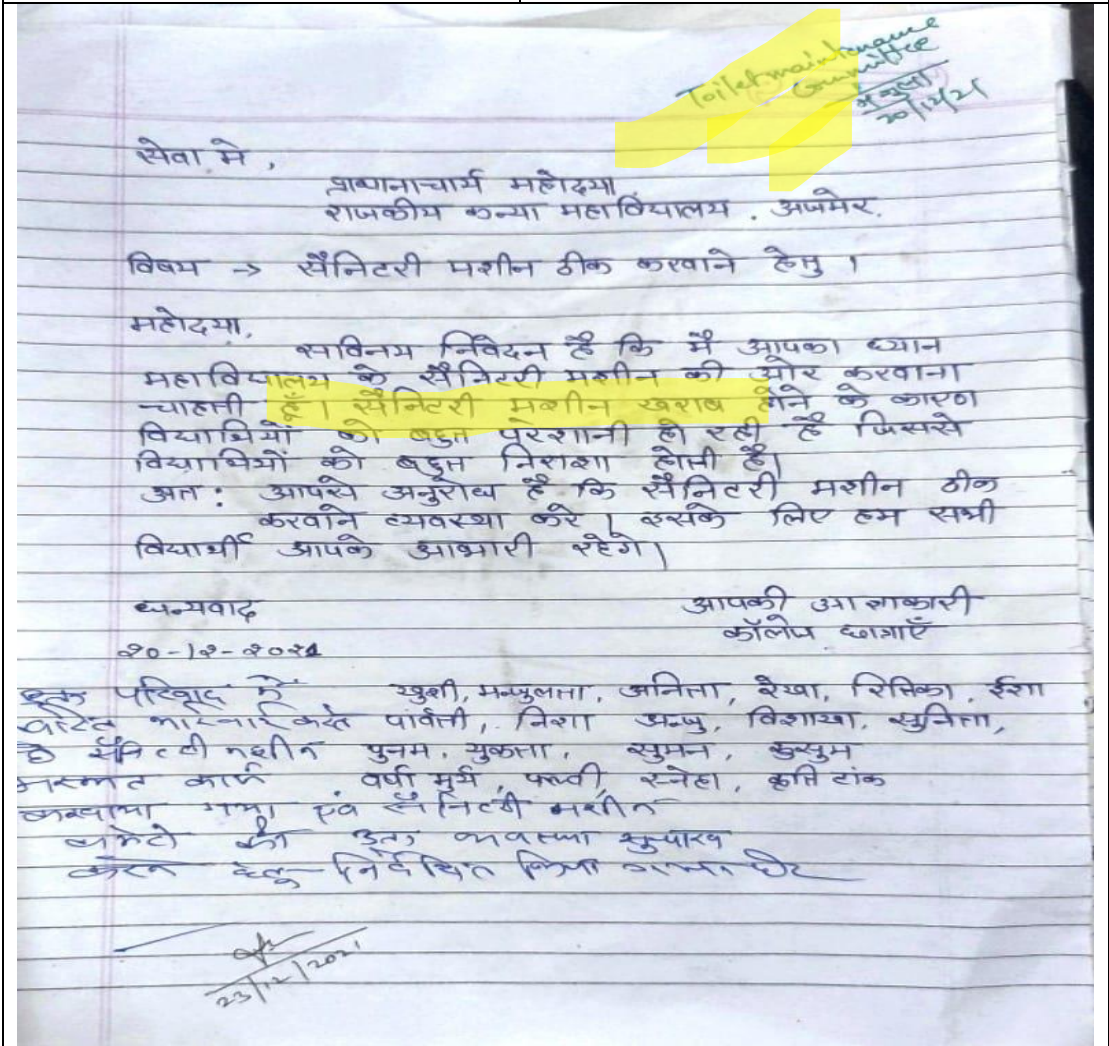 Toilet maintenance
Committee
मंजुला
20/12/21
सेवा मे,
प्रधानाचार्य महोदया
राजकीय कन्या महाविद्यालय . अजमेर.
विषय → सैनिटरी मशीन ठीक करवाने हेतु ।
महोदया,
सविनय निवेदन है कि मैं आपका ध्यान
महाविद्यालय के सैनिटरी मशीन की ओर करवाना
चाहती हूँ। सैनिटरी मशीन खराब होने के कारण
विद्यार्थियों को बहुत परेशानी हो रही है जिससे
विद्यार्थियों को बहुत निराशा होती है।
अत: आपसे अनुरोध है कि सैनिटरी मशीन ठीक
करवाने व्यवस्था करे । इसके लिए हम सभी
विद्यार्थी आपके आभारी रहेगे।
धन्यवाद आपकी आज्ञाकारी
कॉलेज छात्राएँ
20-12-2021
उक्त परिवाद में खुशी, मन्जुलता, अनिता, रेखा, रितिका, ईशा
पार्वती, निशा अन्जु, विशाखा, सुनिता,
है सैनिटरी मशीन पुनम, मुकता, सुमन, कुसुम
मरम्मत कार्य वर्षा मुर्य, पल्लवी, स्नेहा, कृति टांक
करवाया गया एवं सैनिटरी मशीन
कमेटी को उक्त व्यवस्था
करने हेतु निर्देशित किया गया
23/12/2021